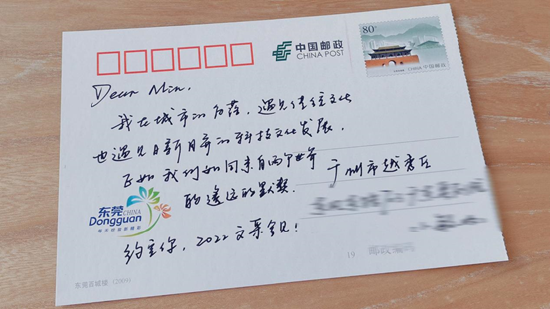 中国邮政
CHINA POST
80分
中国邮政
Dear Min,
我在城市的角落，遇见传统文化
也遇见日新月异的科技文化发展，
正如我们如同来自两个世界
的遥远的默契
广州市越秀区
东莞CHINA
Dongguan
约定你，2022文采会见！
邮政编码